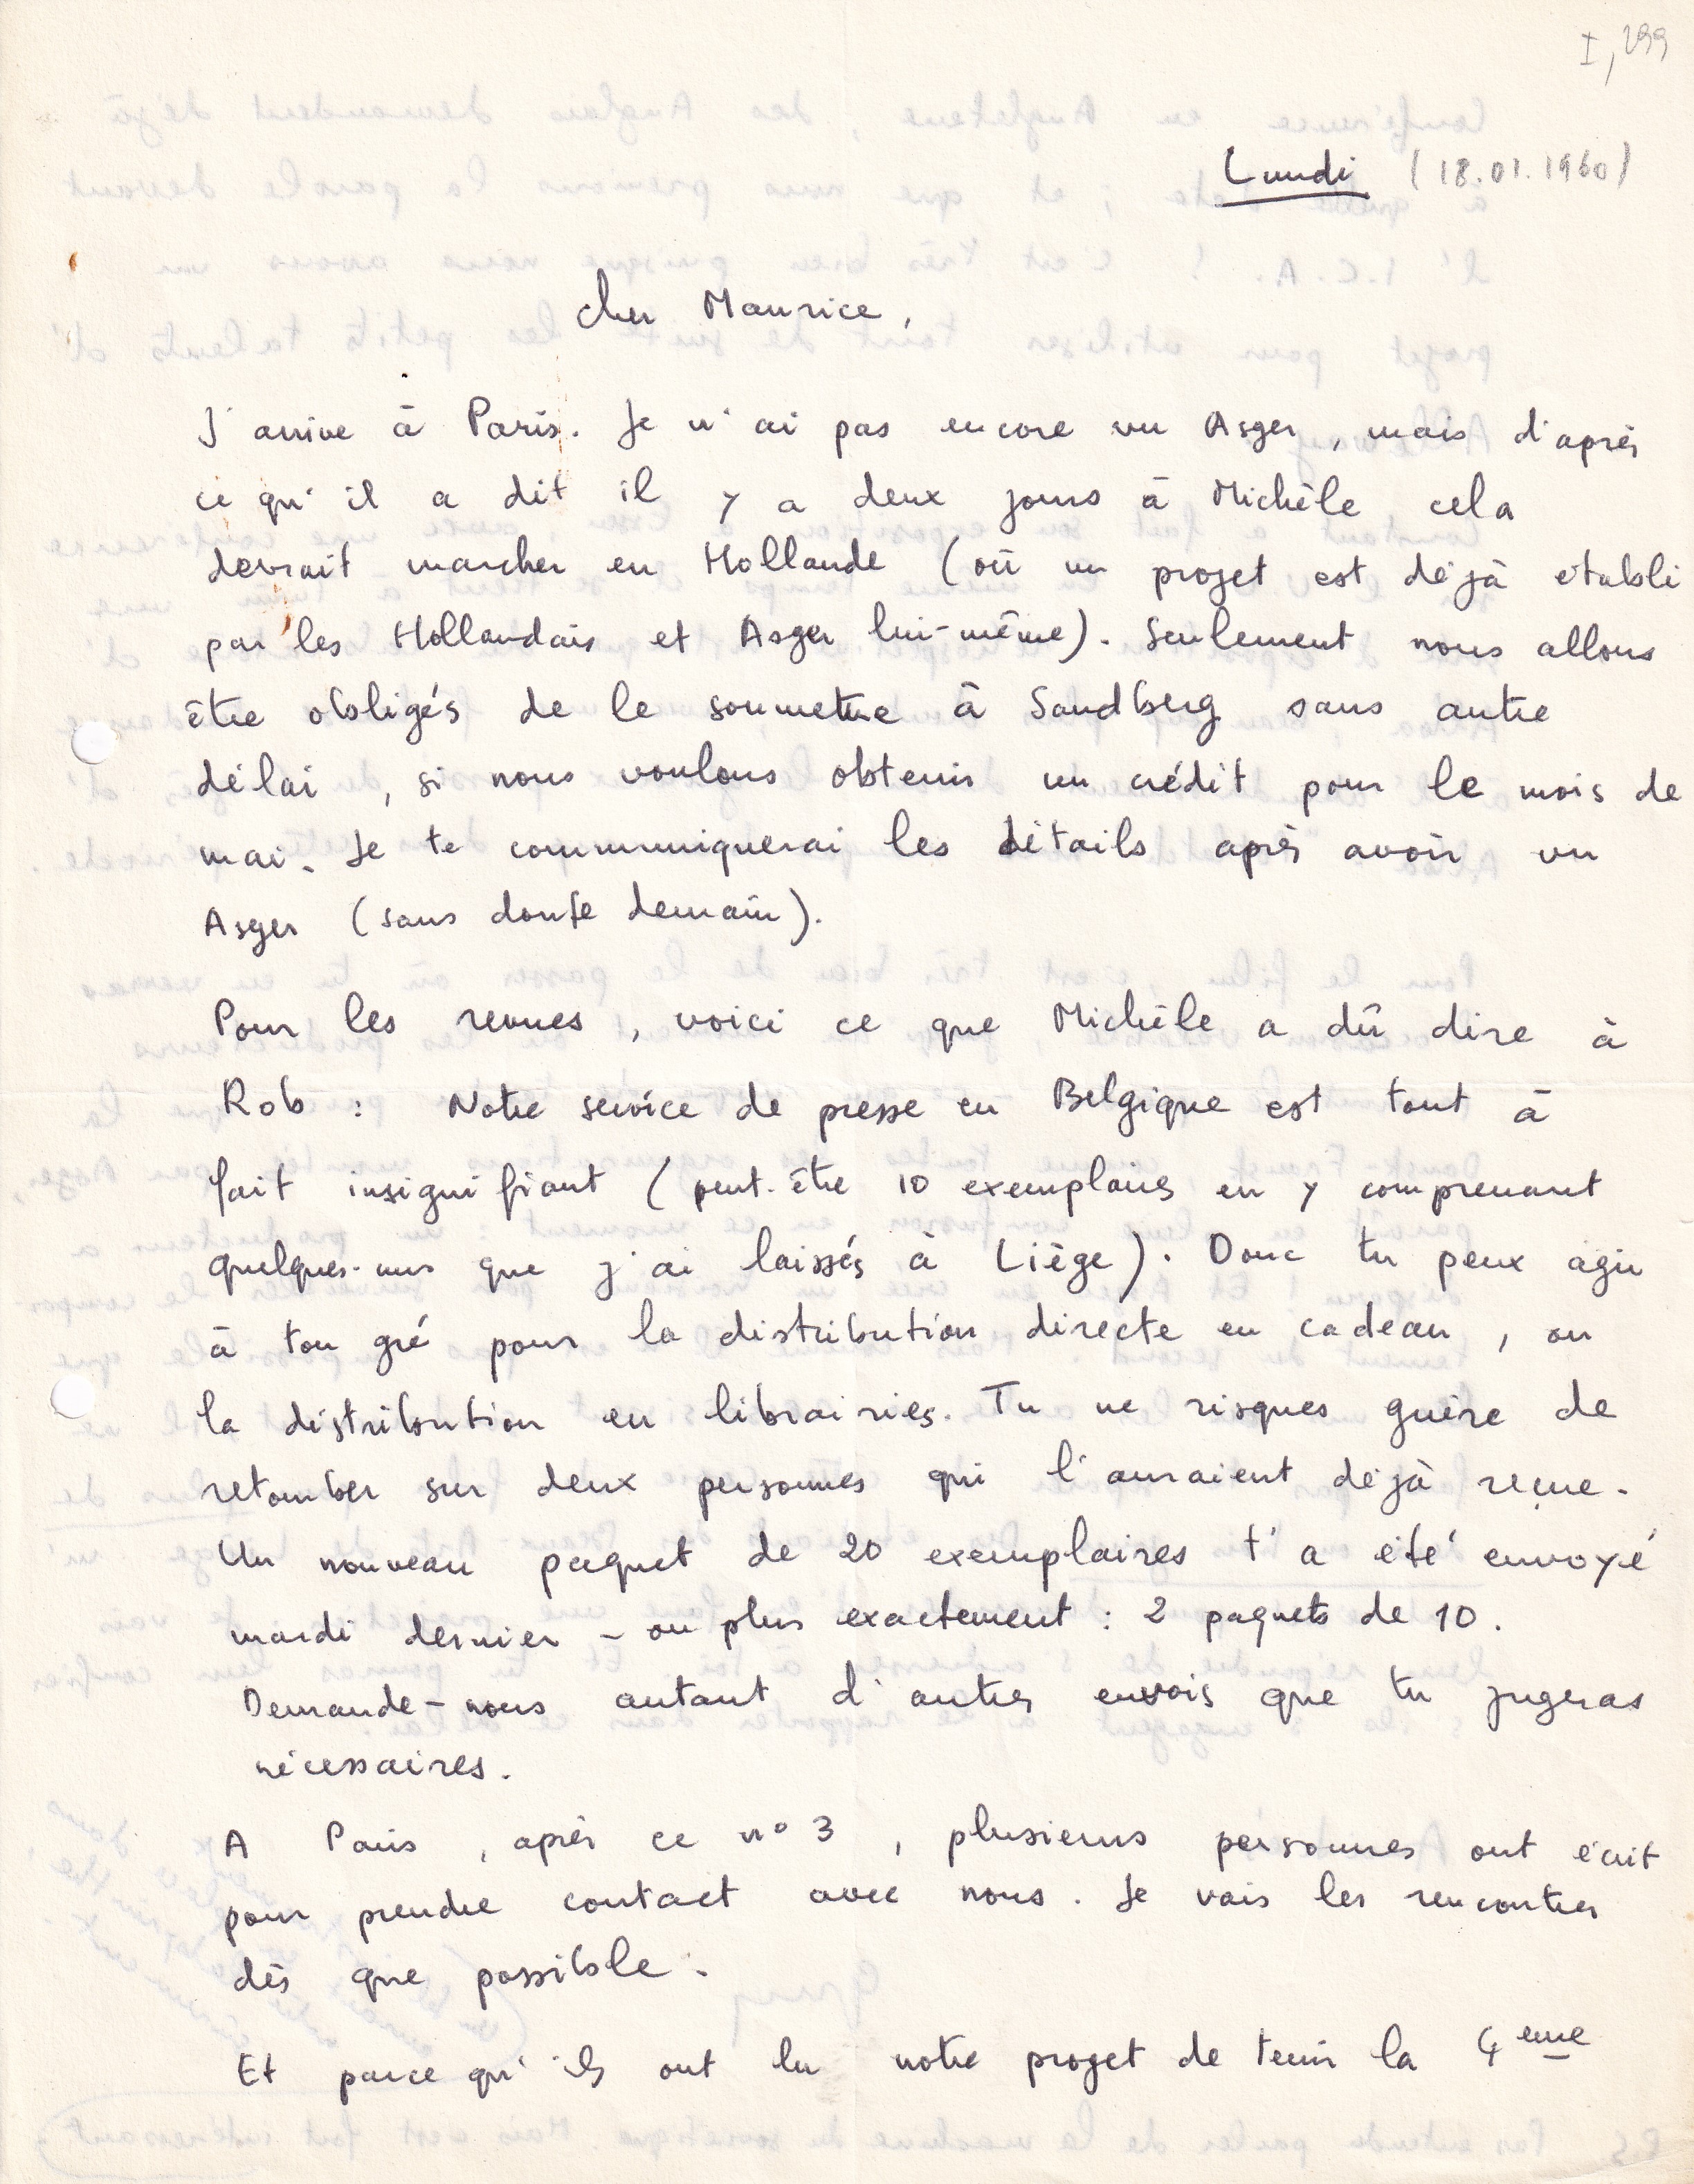 I, 299
Lundi (18.01.1960)
Cher Maurice,
J'arrive à Paris. Je n'ai pas encore vu Asger, mais d'après
ce qu'il a dit il y a deux jours à Michèle cela
devrait marcher en Hollande (où un projet est déjà établi
par les Hollandais et Asger lui-même). Seulement nous allons
être obligés de le soumettre à Sandberg sans autre
délai, si nous voulons obtenir un crédit pour le mois de
mai. Je te communiquerai les détails après avoir vu
Asger (sans doute demain).
Pour les revues, voici ce que Michèle a dû dire à
Rob : Notre service de presse en Belgique est tout à
fait insignifiant (peut-être 10 exemplaires en y comprenant
quelques-uns que j'ai laissés à Liège). Donc tu peux agir
à ton gré pour la distribution directe en cadeau, ou
la distribution en librairies. Tu ne risques guère de
retomber sur deux personnes qui l'auraient déjà reçue.
Un nouveau paquet de 20 exemplaires t'a été envoyé
mardi dernier - ou plus exactement : 2 paquets de 10.
Demande-nous autant d'autres envois que tu jugeras
nécessaires.
A Paris, après ce n° 3, plusieurs personnes ont écrit
pour prendre contact avec nous. Je vais les rencontrer
dès que possible.
Et parce qu'ils ont lu notre projet de tenir la 4eme